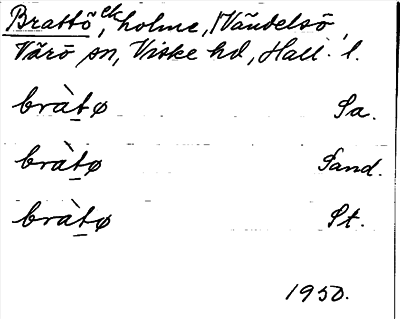 Brattö, ek, holme, /Vändelsö
Värö sn, Viske hd, Hall. l.
bràt̲ø Sa.
bràt̲ø Sand.
bràt̲ø St.
1950.